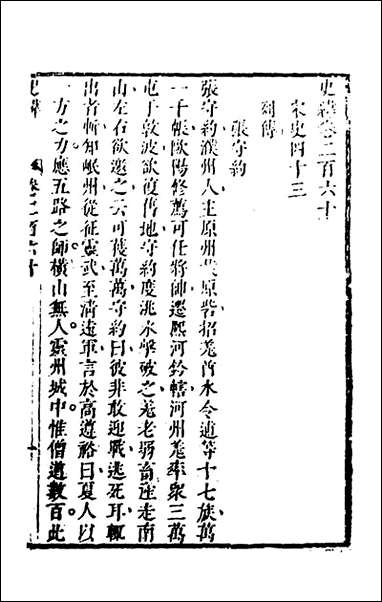 史緯卷二百六十
宋史四十三
列傳
張守約
張守約濮州人主原州截原砦招羗酋水令逋等十七族萬
一千帳歐陽修薦可任將帥遷熈河鈐轄河州羗率衆三萬
屯于敦波欲復舊地守約度洮水擊破之羗老弱畜產走南
山左右欲邀之云可獲萬萬守約曰彼非敢迎戰逃死耳輒
出者斬知岷州從征靈武至清遠軍言於高遵裕曰夏人以
一方之力應五路之師橫山無人靈州城中惟僧道數百此
史緯
卷二百六十